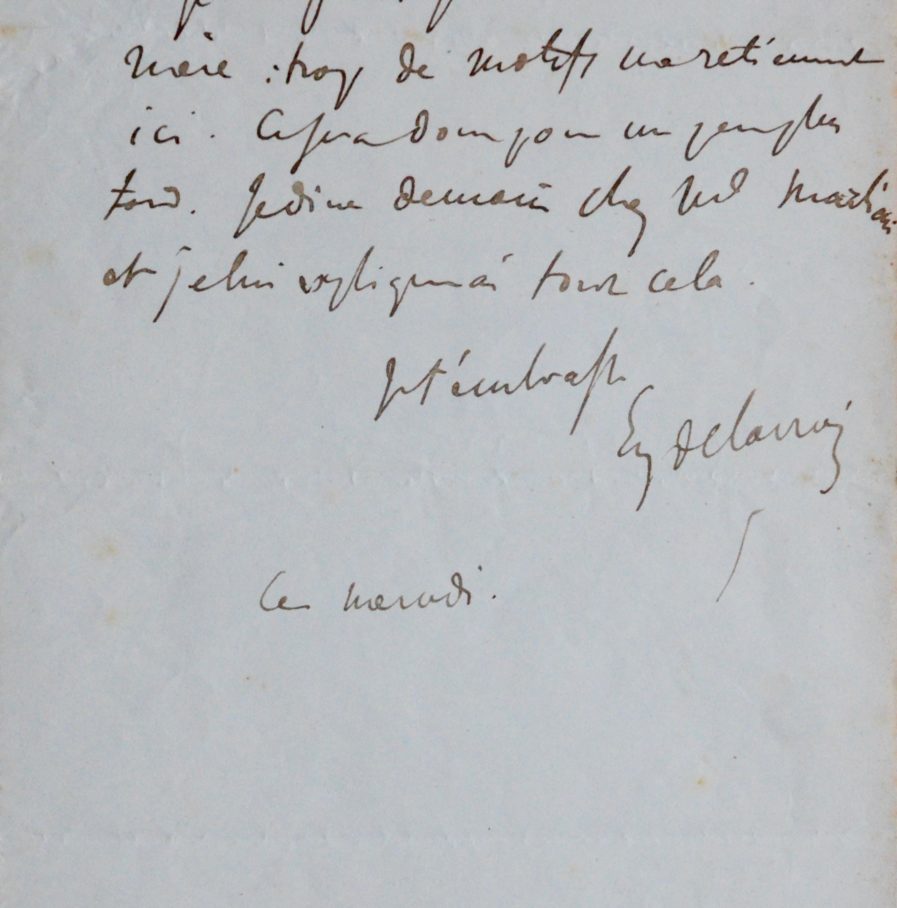 mère : trop de motifs me retiennent
ici. Ce sera donc pour un peu plus
tard. Je dine demain chez Md Marliani
et je lui expliquerai tout cela.
Je t'embrasse
Eug Delacroix
Ce mercredi.